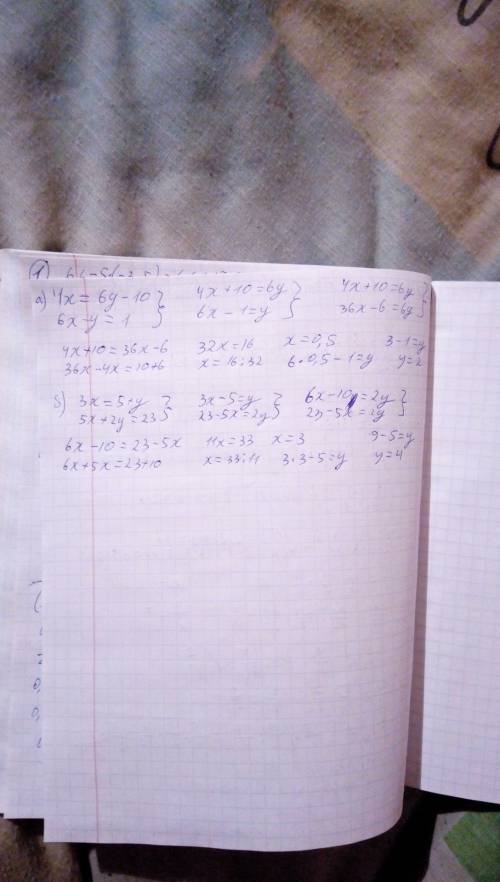 1)
а) 4x = 6y - 10 } 4x + 10 = 6y } 4x + 10 = 6y }
6x - y = 1 6x - 1 = y 36x - 6 = 6y
4x + 10 = 36x - 6 32x = 16 x = 0,5 3 - 1 = y
36x - 4x = 10 + 6 x = 16 : 32 6 · 0,5 - 1 = y y = 2
б) 3x = 5 + y } 3x - 5 = y } 6x - 10 = 2y }
5x + 2y = 23 23 - 5x = 2y 23 - 5x = 2y
6x - 10 = 23 - 5x 11x = 33 x = 3 9 - 5 = y
6x + 5x = 23 + 10 x = 33 : 11 3 · 3 - 5 = y y = 4